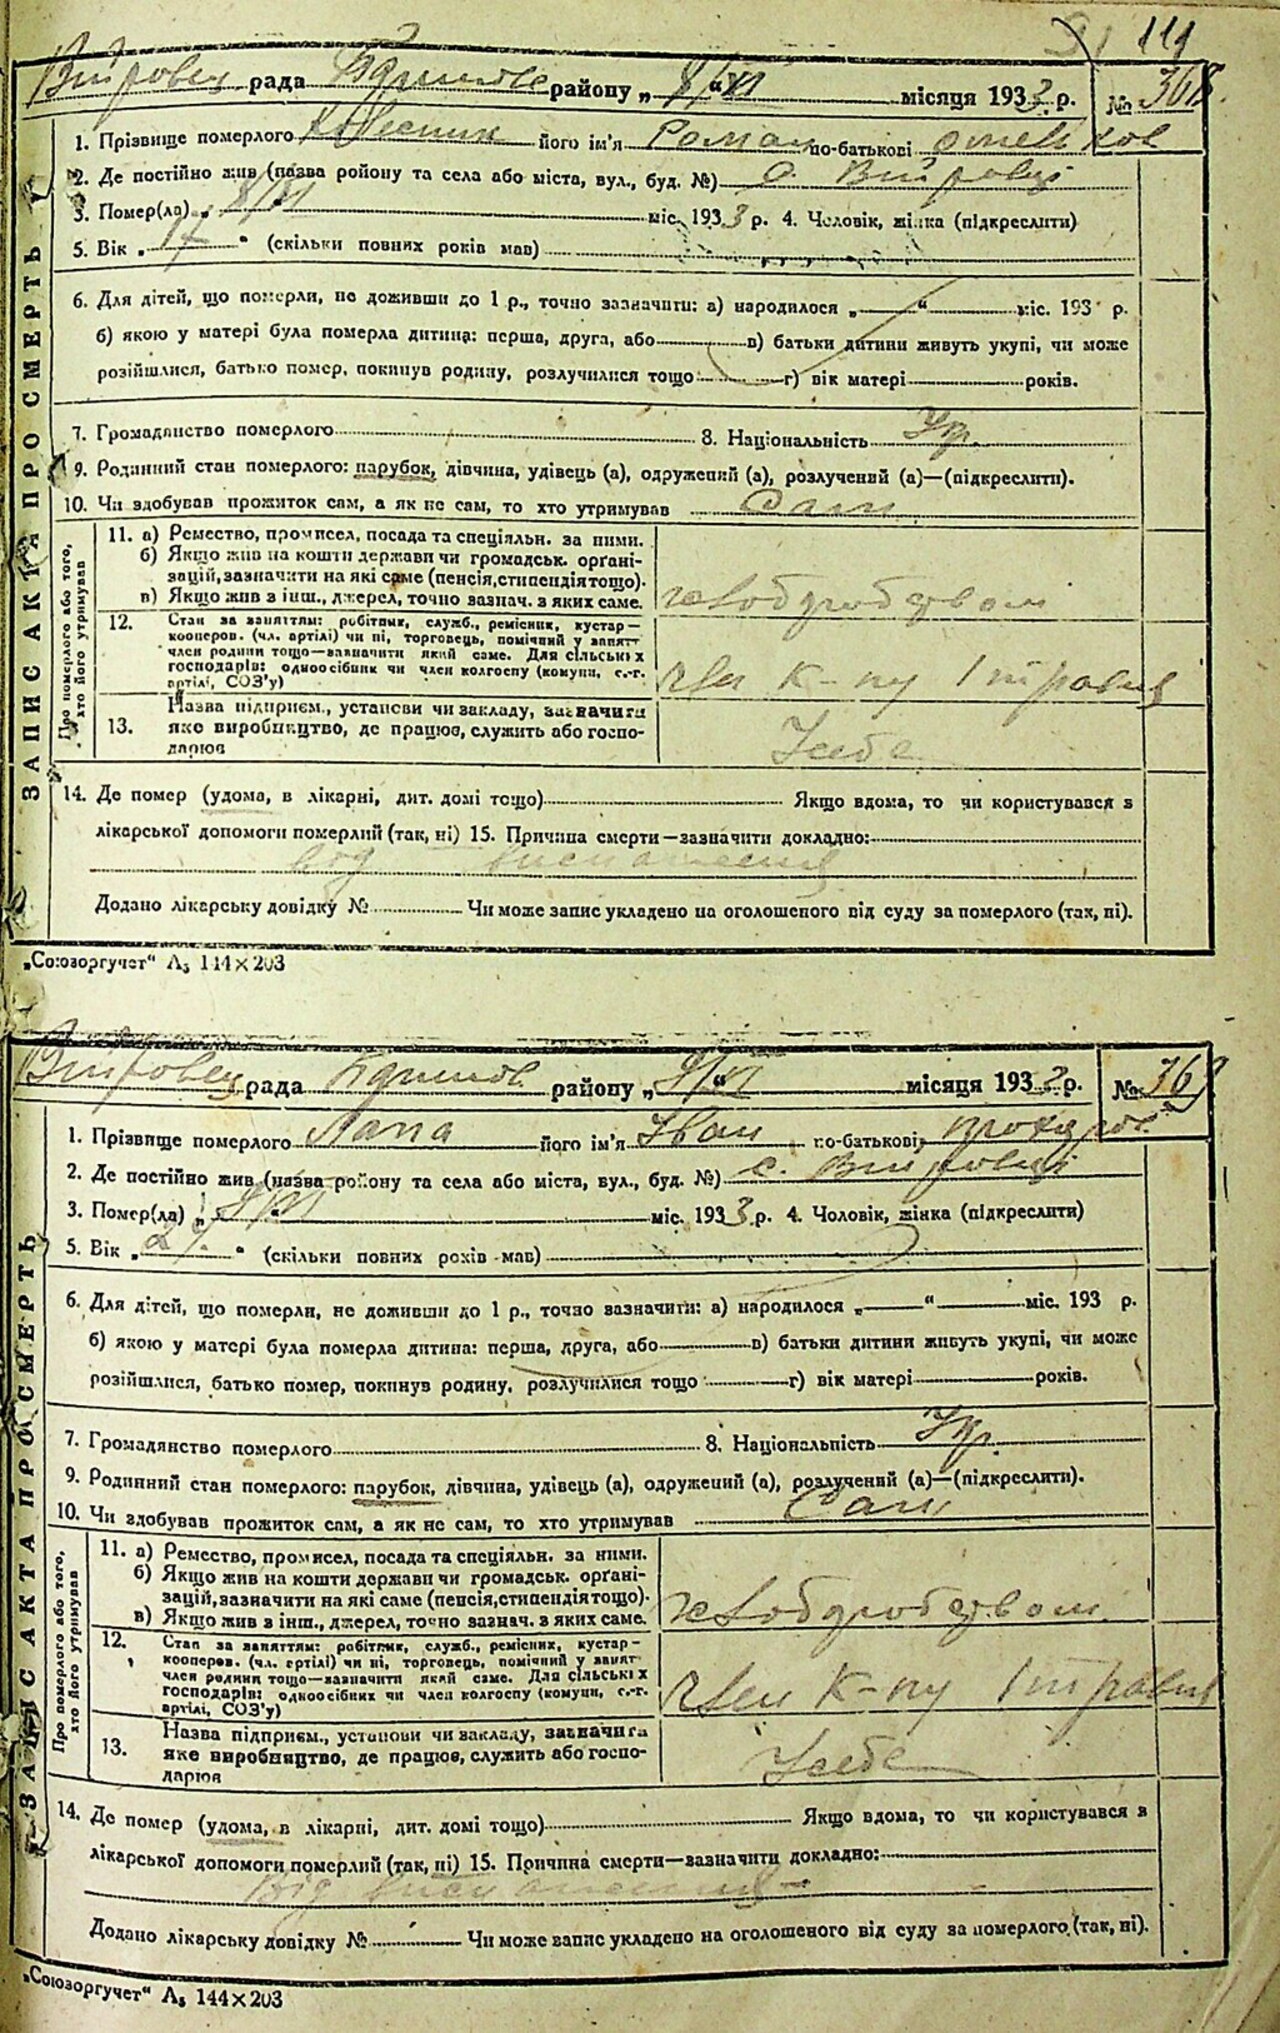 111
рада району „ 8/VI “ місяця 1933 р. № 368.
1. Прізвище померлого Колесник його ім'я Роман по-батькові
2. Де постійно жив (назва ройону та села або міста, вул., буд. №) с. Вітровці
3. Помер(ла) „ 8/VI міс. 1933 р. 4. Чоловік, жінка (підкреслити)
5. Вік „ 17 “ (скільки повних років мав)
6. Для дітей, що померли, не доживши до 1 р., точно зазначити: а) народилося „ “ міс. 193 р.
б) якою у матері була померла дитина: перша, друга, або в) батьки дитини живуть укупі, чи може
розійшлися, батько помер, покинув родину, розлучилися тощо г) вік матері років.
7. Громадянство померлого 8. Національність Укр.
9. Родинний стан померлого: парубок, дівчина, удівець (а), одружений (а), розлучений (а)—(підкреслити).
10. Чи здобував прожиток сам, а як не сам, то хто утримував Сам
ЗАПИС АКТА ПРО СМЕРТЬ
Про померлого або того, хто його утримував
11. а) Ремество, промисел, посада та спеціяльн. за ними.
б) Якщо жив на кошти держави чи громадськ. орґані-
зацій, зазначити на які саме (пенсія, стипендія тощо).
в) Якщо жив з інш., джерел, точно зазнач. з яких саме.
хлібодробством
12. Стан за заняттям: робітник, служб., ремісник, кустар—
кооперов. (чл. артілі) чи ні, торговець, помічний у занят—
член родини тощо—зазначити який саме. Для сільських
господарів: одноосібник чи член колгоспу (комуни, с.-г.
артілі, СОЗ'у)
член к-пу 1 травня
13. Назва підприєм., установи чи закладу, зазначити
яке виробництво, де працює, служить або госпо-
дарює
У себе
14. Де помер (удома, в лікарні, дит. домі тощо) Якщо вдома, то чи користувався з
лікарської допомоги померлий (так, ні) 15. Причина смерти—зазначити докладно:
від висна­ження
Додано лікарську довідку № Чи може запис укладено на оголошеного від суду за померлого (так, ні).
„Союзоргучет“ А₅ 144×203
рада району „ 9/VI “ місяця 1933 р. № 369
1. Прізвище померлого Лапа його ім'я Іван по-батькові Прохоров
2. Де постійно жив (назва ройону та села або міста, вул., буд. №) с. Вітровці
3. Помер(ла) „ 9/VI міс. 1933 р. 4. Чоловік, жінка (підкреслити)
5. Вік „ “ (скільки повних років мав)
6. Для дітей, що померли, не доживши до 1 р., точно зазначити: а) народилося „ “ міс. 193 р.
б) якою у матері була померла дитина: перша, друга, або в) батьки дитини живуть укупі, чи може
розійшлися, батько помер, покинув родину, розлучилися тощо г) вік матері років.
7. Громадянство померлого 8. Національність Укр.
9. Родинний стан померлого: парубок, дівчина, удівець (а), одружений (а), розлучений (а)—(підкреслити).
10. Чи здобував прожиток сам, а як не сам, то хто утримував Сам
ЗАПИС АКТА ПРО СМЕРТЬ
Про померлого або того, хто його утримував
11. а) Ремество, промисел, посада та спеціяльн. за ними.
б) Якщо жив на кошти держави чи громадськ. орґані-
зацій, зазначити на які саме (пенсія, стипендія тощо).
в) Якщо жив з інш., джерел, точно зазнач. з яких саме.
хлібодробством
12. Стан за заняттям: робітник, служб., ремісник, кустар—
кооперов. (чл. артілі) чи ні, торговець, помічний у занят—
член родини тощо—зазначити який саме. Для сільських
господарів: одноосібник чи член колгоспу (комуни, с.-г.
артілі, СОЗ'у)
член к-пу 1 травня
13. Назва підприєм., установи чи закладу, зазначити
яке виробництво, де працює, служить або госпо-
дарює
У себе
14. Де помер (удома, в лікарні, дит. домі тощо) Якщо вдома, то чи користувався з
лікарської допомоги померлий (так, ні) 15. Причина смерти—зазначити докладно:
Від виснаження
Додано лікарську довідку № Чи може запис укладено на оголошеного від суду за померлого (так, ні).
„Союзоргучет“ А₅ 144×203